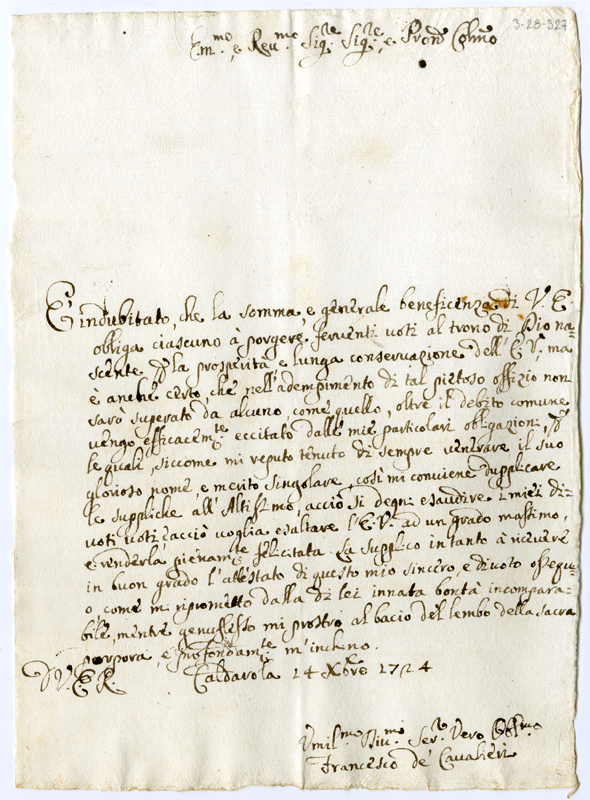 3-28-327
Em.mo, e Reu.mo Sig.re Sig.re, e Pron Colmo
E' indubitato, che la somma, e generale beneficenza di V. E.
obliga ciascuno à porgere ferventi voti al trono di Dio na-
scente p la prosperità, e lunga conservazione dell' E. V., ma
è anche certo, che nell'adempimento di tal pietoso offizio non
sarò superato da alcuno, come quello, oltre il debito comune
vengo efficacem.te eccitato dalle mie particolari obligazioni, p
le quali, siccome mi reputo tenuto di sempre venerare il suo
glorioso nome, e merito singolare, così mi conviene dupplicare
le suppliche all' Altissimo, acciò si degni esaudire i miei di-
voti voti, acciò voglia esaltare l'E. V. ad un grado massimo,
e renderla pienam.te felicitata. La supplico intanto à ricevere
in buon grado l'attestato di questo mio sincero, e divoto ossequi-
o come mi riprometto dalla di lei innata bontà incompara-
bile, mentre genuflesso mi prostro al bacio del lembo della sacra
porpora, e profondam.te m'inchino.
D V. E. R. Caldarola 24 Xbre 1724
Umil.mo Diu.mo Ser.re Vero
Francesco de' Caualieri